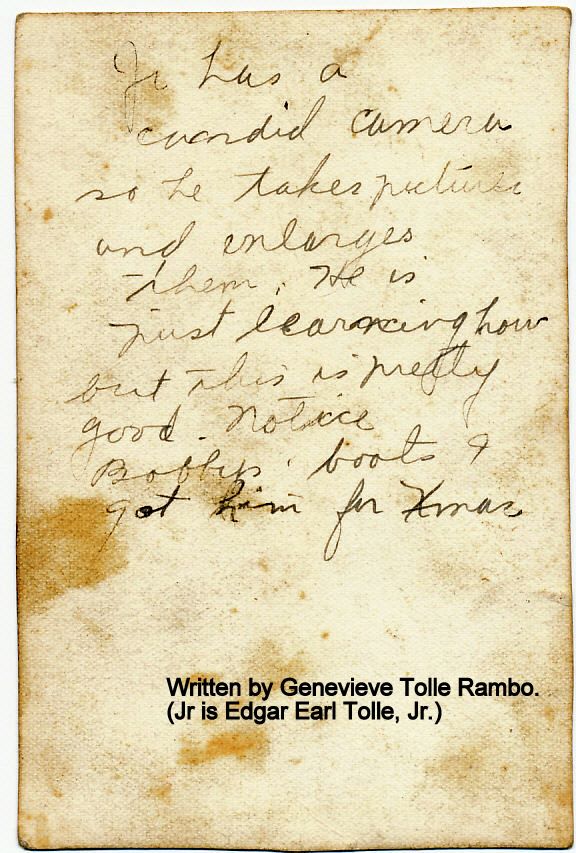 Jr has a
candid camera
so he takes pictures
and enlarges
them. He is
just learning how
but this is pretty
good. Notice
Bobbys. boots I
got him for Xmas
Written by Genevieve Tolle Rambo.
(Jr is Edgar Earl Tolle, Jr.)